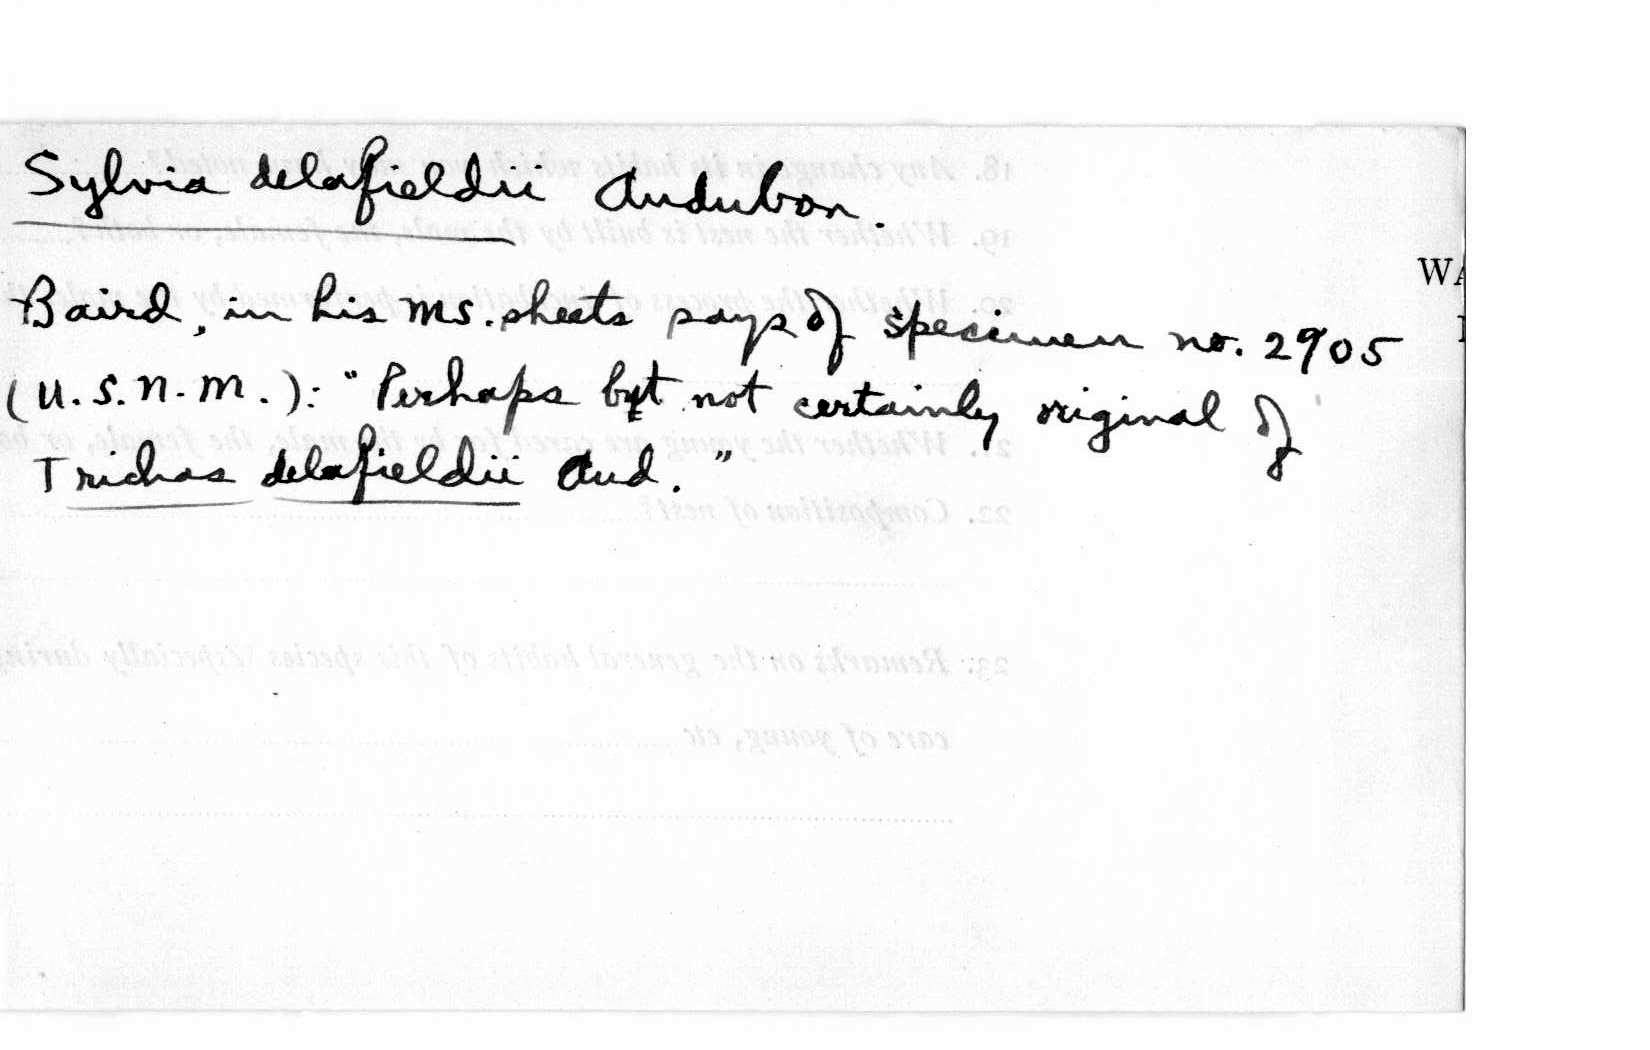 Sylvia delafieldii Audubon.
Baird, in his ms. sheets says of specimen no. 2905
(U.S.N.M.): "Perhaps but not certainly original of
Trichas delafieldii Aud."
WA
18. Any change in its habits which you may have noted?
19. Whether the nest is built by the male, the female, or both?
20. Whether the process of incubation is performed by the male, th
21. Whether the young are cared for by the male, the female, or bo
22. Composition of nest?
23. Remarks on the general habits of this species (especially durin
care of young, etc